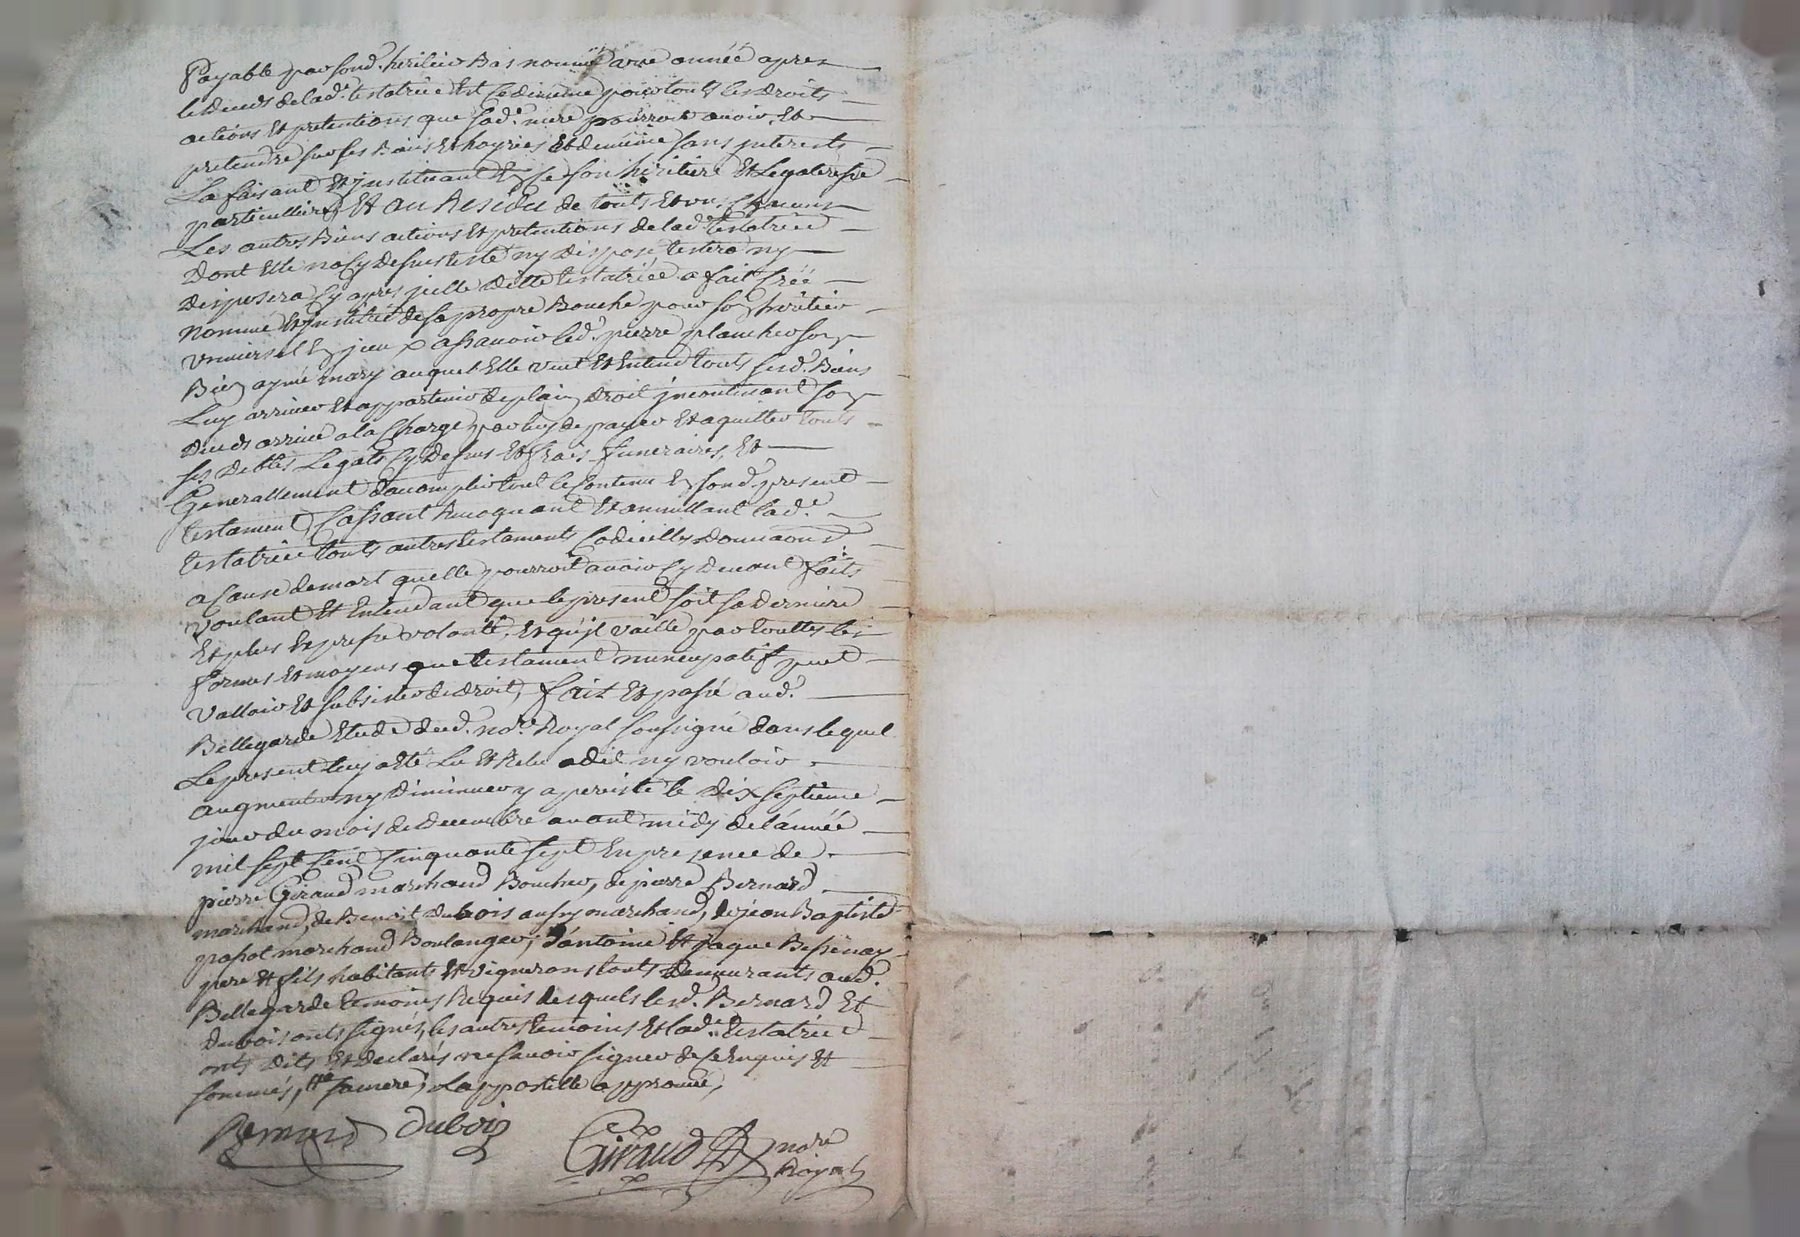 Payable par sond. heritier Bas nommé une année apres
le deceds de lad. testatrice Et ce dernier pour touts les droits
actions Et pretentions que sad. mere pourroit avoir Et
pretendre sur ses Biens Et hoyries Et de même sans interests
La faisant Et instituant En ce son héritiere Et Legateresse
particulliere Et au Residu de touts Et uns Chacuns
Les autres Biens actions Et pretentions de lad. testatrice
Dont Elle na Cy dessus testé ny disposé, testera ny
disposera Cy apres jcelle ditte testatrice a fait Créé
Nommé Et jnstitué de sa propre Bouche pour son héritier
universel Et assavoir led. pierre plancher son
Bien aymé mary auquel Elle veut Et Entend touts sesd. Biens
Luy arriver Et appartenir de plain droit jncontinant son
deceds arrivé a la Charge par luy de payer Et aquitter touts
ses debtes Legats Cy dessus Et frais funeraires, Et
Generallement d'accomplir tout le Contenu En sond. present
testament, Cassant Revoquant Et annullant lad.
testatrice touts autres testaments Codicilles Donnaons
a Cause de mort quelle pourroit avoir Cy devant faits
voulant Et Entendant que le present soit sa derniere
Et plus Expresse volonté, Et qu'jl vaille par touttes les
formes Et moyens que testament nuncupatif peut
valloir Et subsister de droit, fait Et passé aud.
Bellegarde Etude dud. no.re Royal soussigné dans lequel
Le present luy a Eté Lu Et Relu a dit ny vouloir
augmenter ny diminuer y a persisté le dix septieme
jour du mois de Decembre avant midy de l'année
mil sept Cent Cinquante sept En presence de
pierre Giraud marchand Boucher, de pierre Bernard
marchand, de Benoit dubois aussy marchand, de jean Baptiste
marchand Boulanger, d'antoine Et jaque Bessenay
pere Et fils habitants Et vignerons touts demeurants aud.
Bellegarde temoins Requis desquels lesd. Bernard Et
dubois onts signés, les autres temoins Et lad. testatrice
onts dits Et declarés ne sçavoir signer de ce Enquis Et
sommés, sa mere, Lappostille approuvé,
Bernard Dubois
Giraud no.re Royal